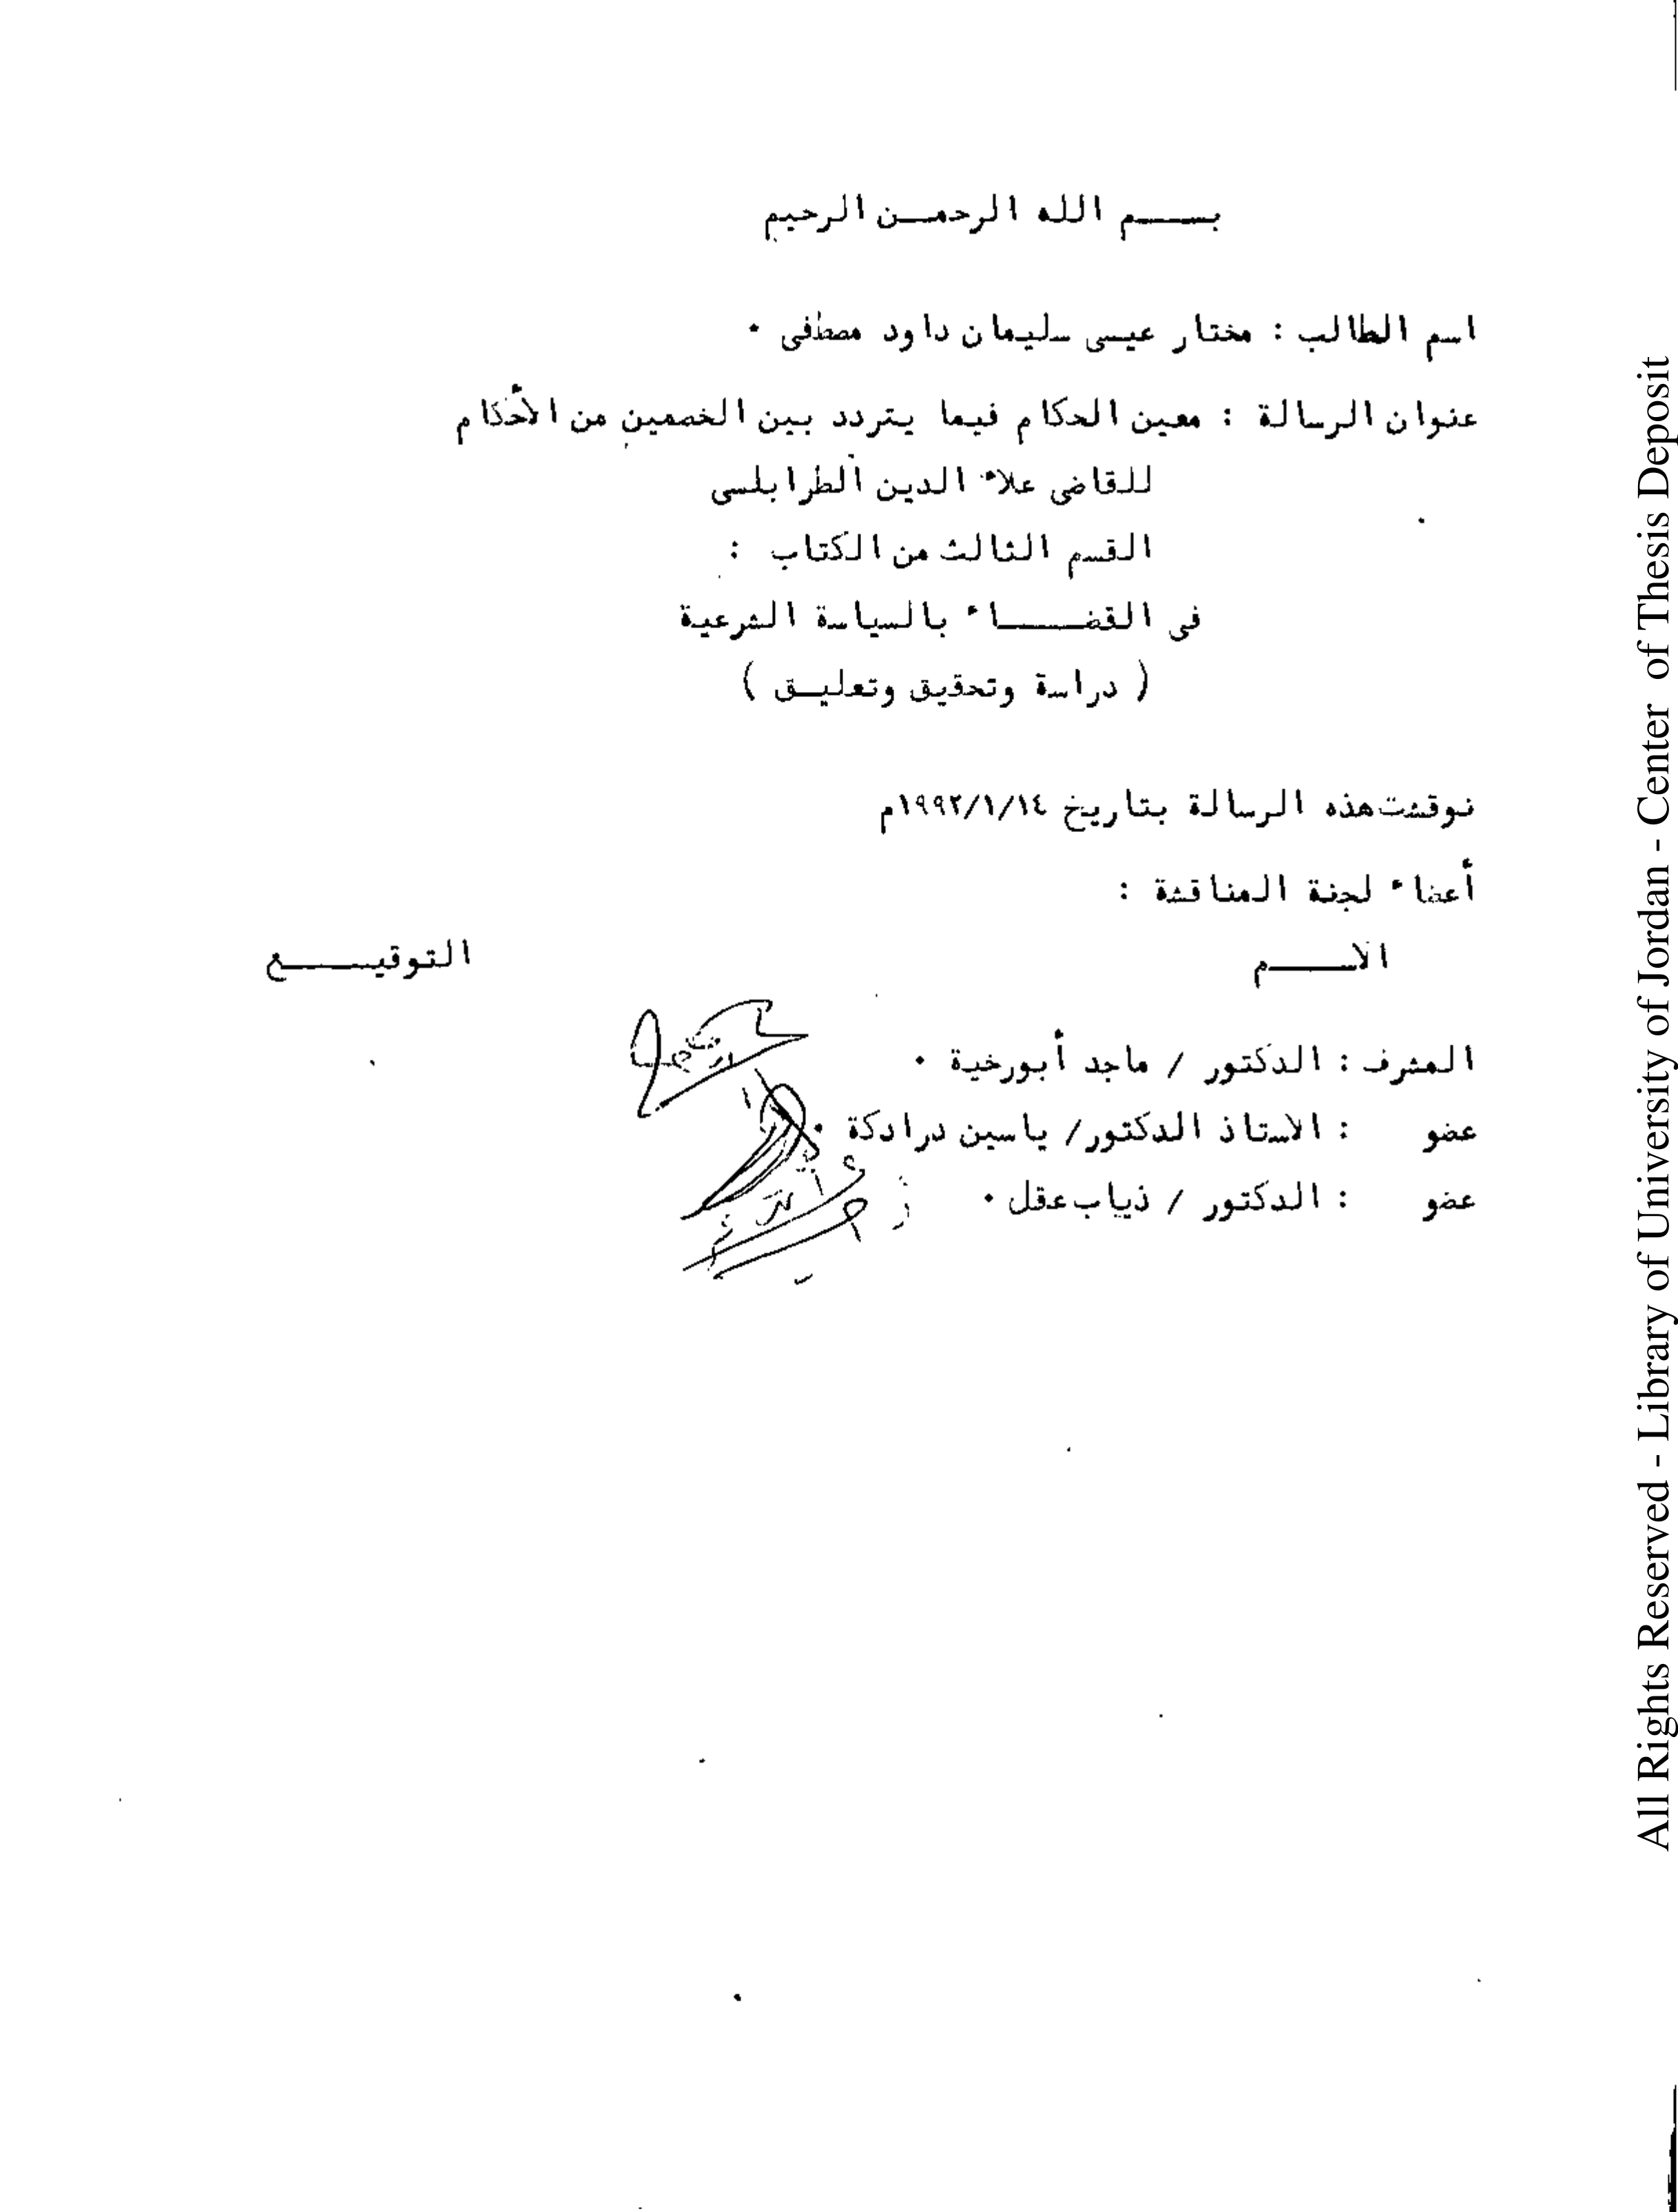 بســـم الله الرحمـن الرحيم
اسم الطالب : مختار عيسى سليمان داود مصطفى ٠
عنوان الرسالة : معين الحكام فيما يتردد بين الخصمين من الأحكام
للقاضى علاء الدين الطرابلسى
القسم الثالث من الكتاب :
فى القضـــاء بالسياسة الشرعية
( دراسة وتحقيق وتعليـق )
نوقشت هذه الرسالة بتاريخ ١٩٩٢/١/١٤م
أعضاء لجنة المناقشة :
الاســـم التوقيـــع
المشرف : الدكتور / ماجد أبورخية ٠
عضو : الاستاذ الدكتور/ ياسين درادكة ٠
عضو : الدكتور / ذياب عقل ٠
All Rights Reserved - Library of University of Jordan - Center of Thesis Deposit